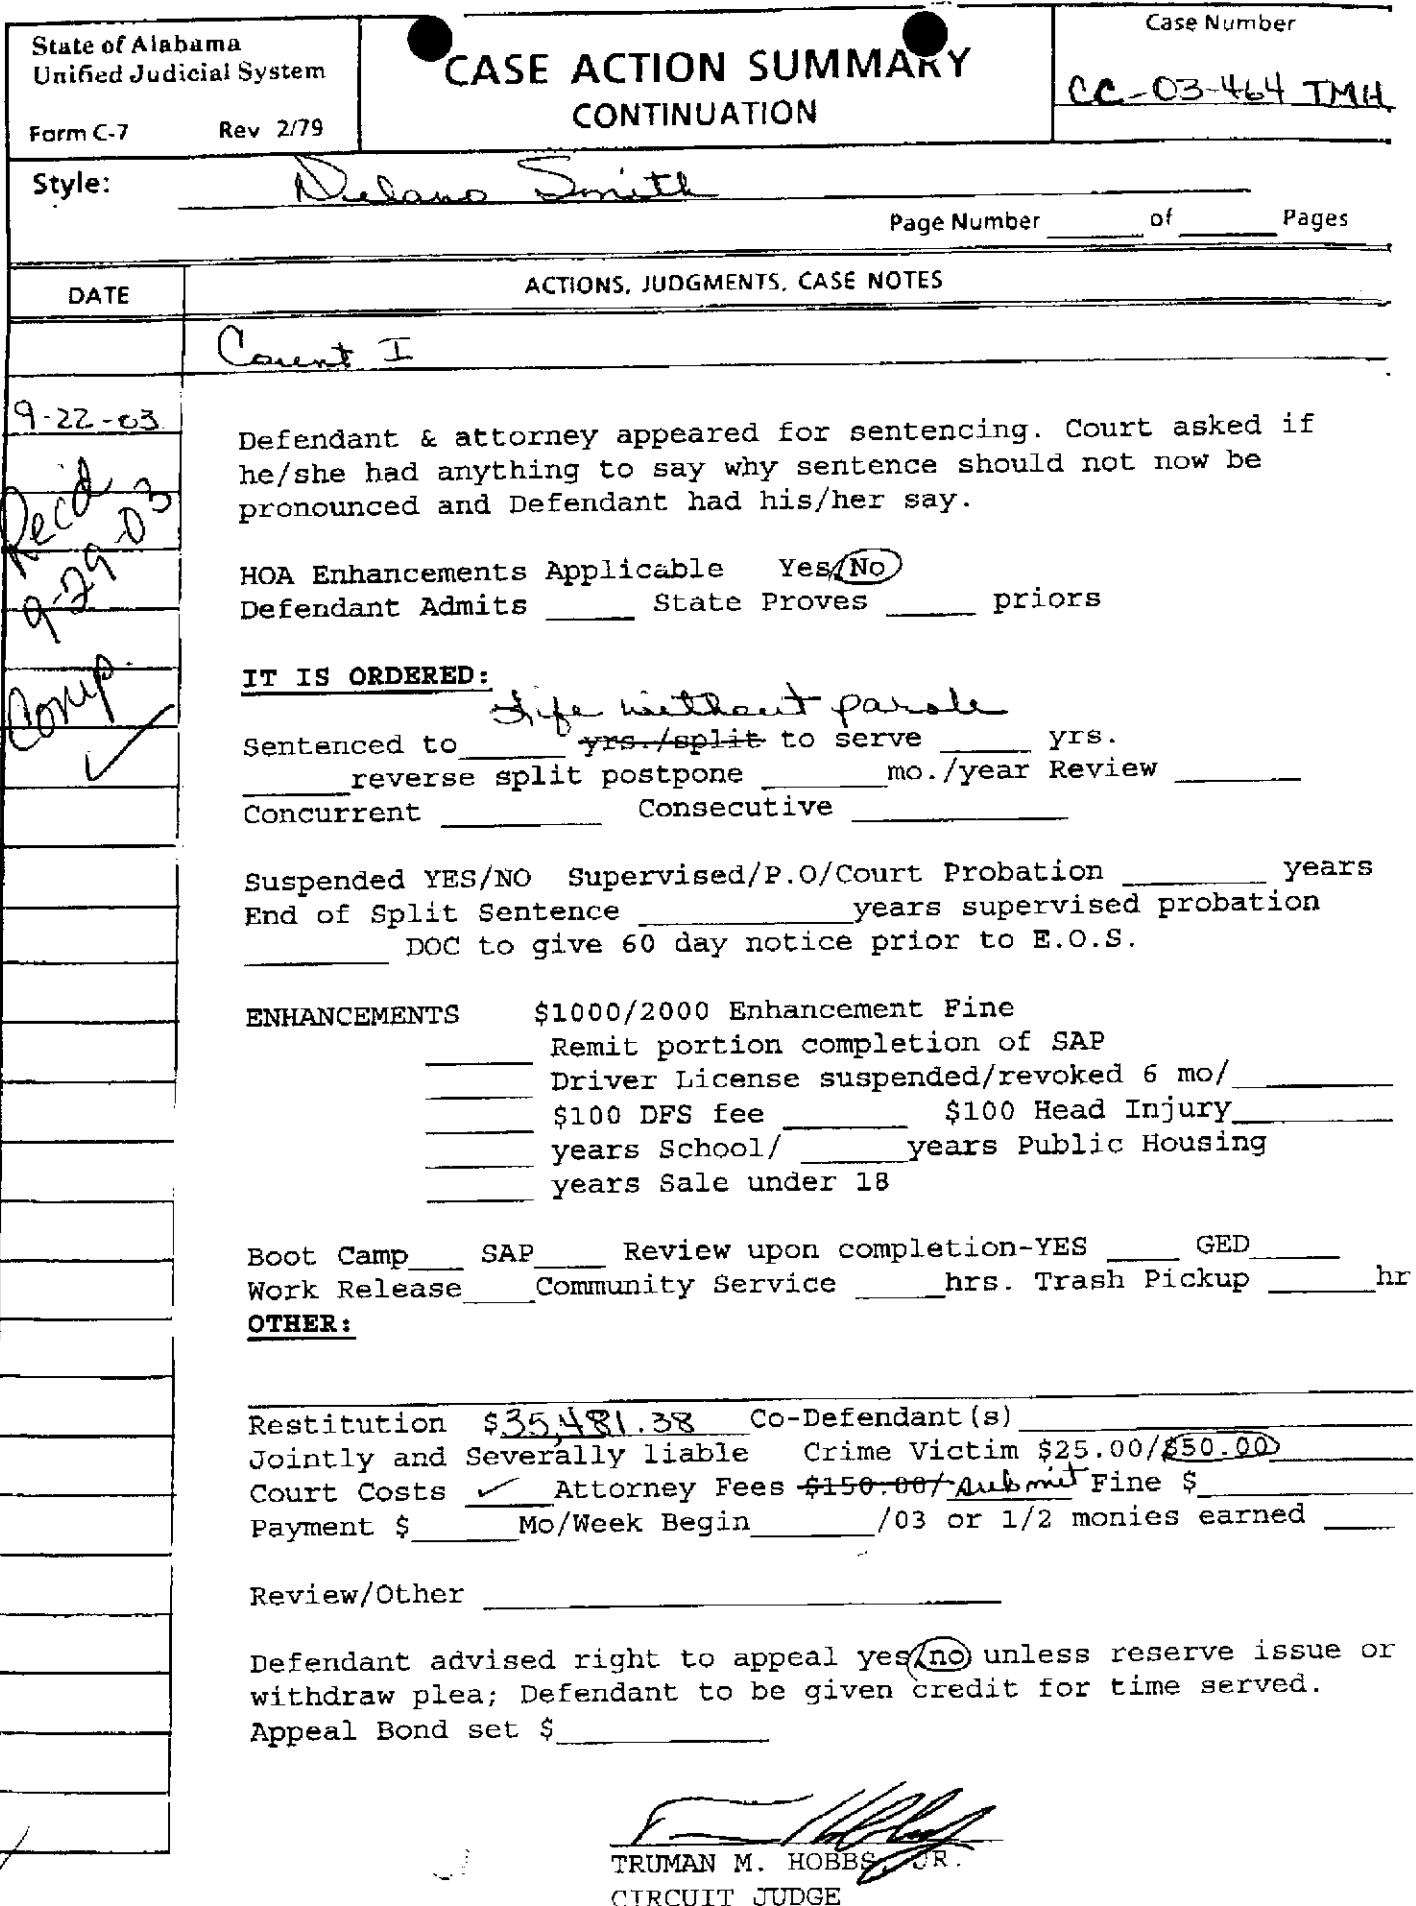 State of Alabama
Unified Judicial System
Form C-7 Rev 2/79
CASE ACTION SUMMARY
CONTINUATION
Case Number
CC-03-464 TMH
Style: Delano Smith
Page Number ______ of ______ Pages
DATE ACTIONS, JUDGMENTS, CASE NOTES
Count I
9-22-03
Rec'd
9-29-03
Comp.
✓
Defendant & attorney appeared for sentencing. Court asked if
he/she had anything to say why sentence should not now be
pronounced and Defendant had his/her say.
HOA Enhancements Applicable Yes/No
Defendant Admits _____ State Proves _____ priors
IT IS ORDERED:
Life without parole
Sentenced to______ yrs./split to serve _____ yrs.
______reverse split postpone _______mo./year Review _______
Concurrent _________ Consecutive ____________
Suspended YES/NO Supervised/P.O/Court Probation ________ years
End of Split Sentence ____________years supervised probation
________ DOC to give 60 day notice prior to E.O.S.
ENHANCEMENTS $1000/2000 Enhancement Fine
______ Remit portion completion of SAP
______ Driver License suspended/revoked 6 mo/_________
______ $100 DFS fee _______ $100 Head Injury_________
______ years School/ ______years Public Housing
______ years Sale under 18
Boot Camp___ SAP____ Review upon completion-YES ____ GED_____
Work Release____Community Service _____hrs. Trash Pickup ______hr
OTHER:
Restitution $35,481.38 Co-Defendant(s)____________
Jointly and Severally liable Crime Victim $25.00/$50.00
Court Costs ✓ Attorney Fees $150.00/ submit Fine $____________
Payment $______Mo/Week Begin_______/03 or 1/2 monies earned ____
Review/Other _____________________________
Defendant advised right to appeal yes/no unless reserve issue or
withdraw plea; Defendant to be given credit for time served.
Appeal Bond set $____________
TRUMAN M. HOBBS, JR.
CIRCUIT JUDGE